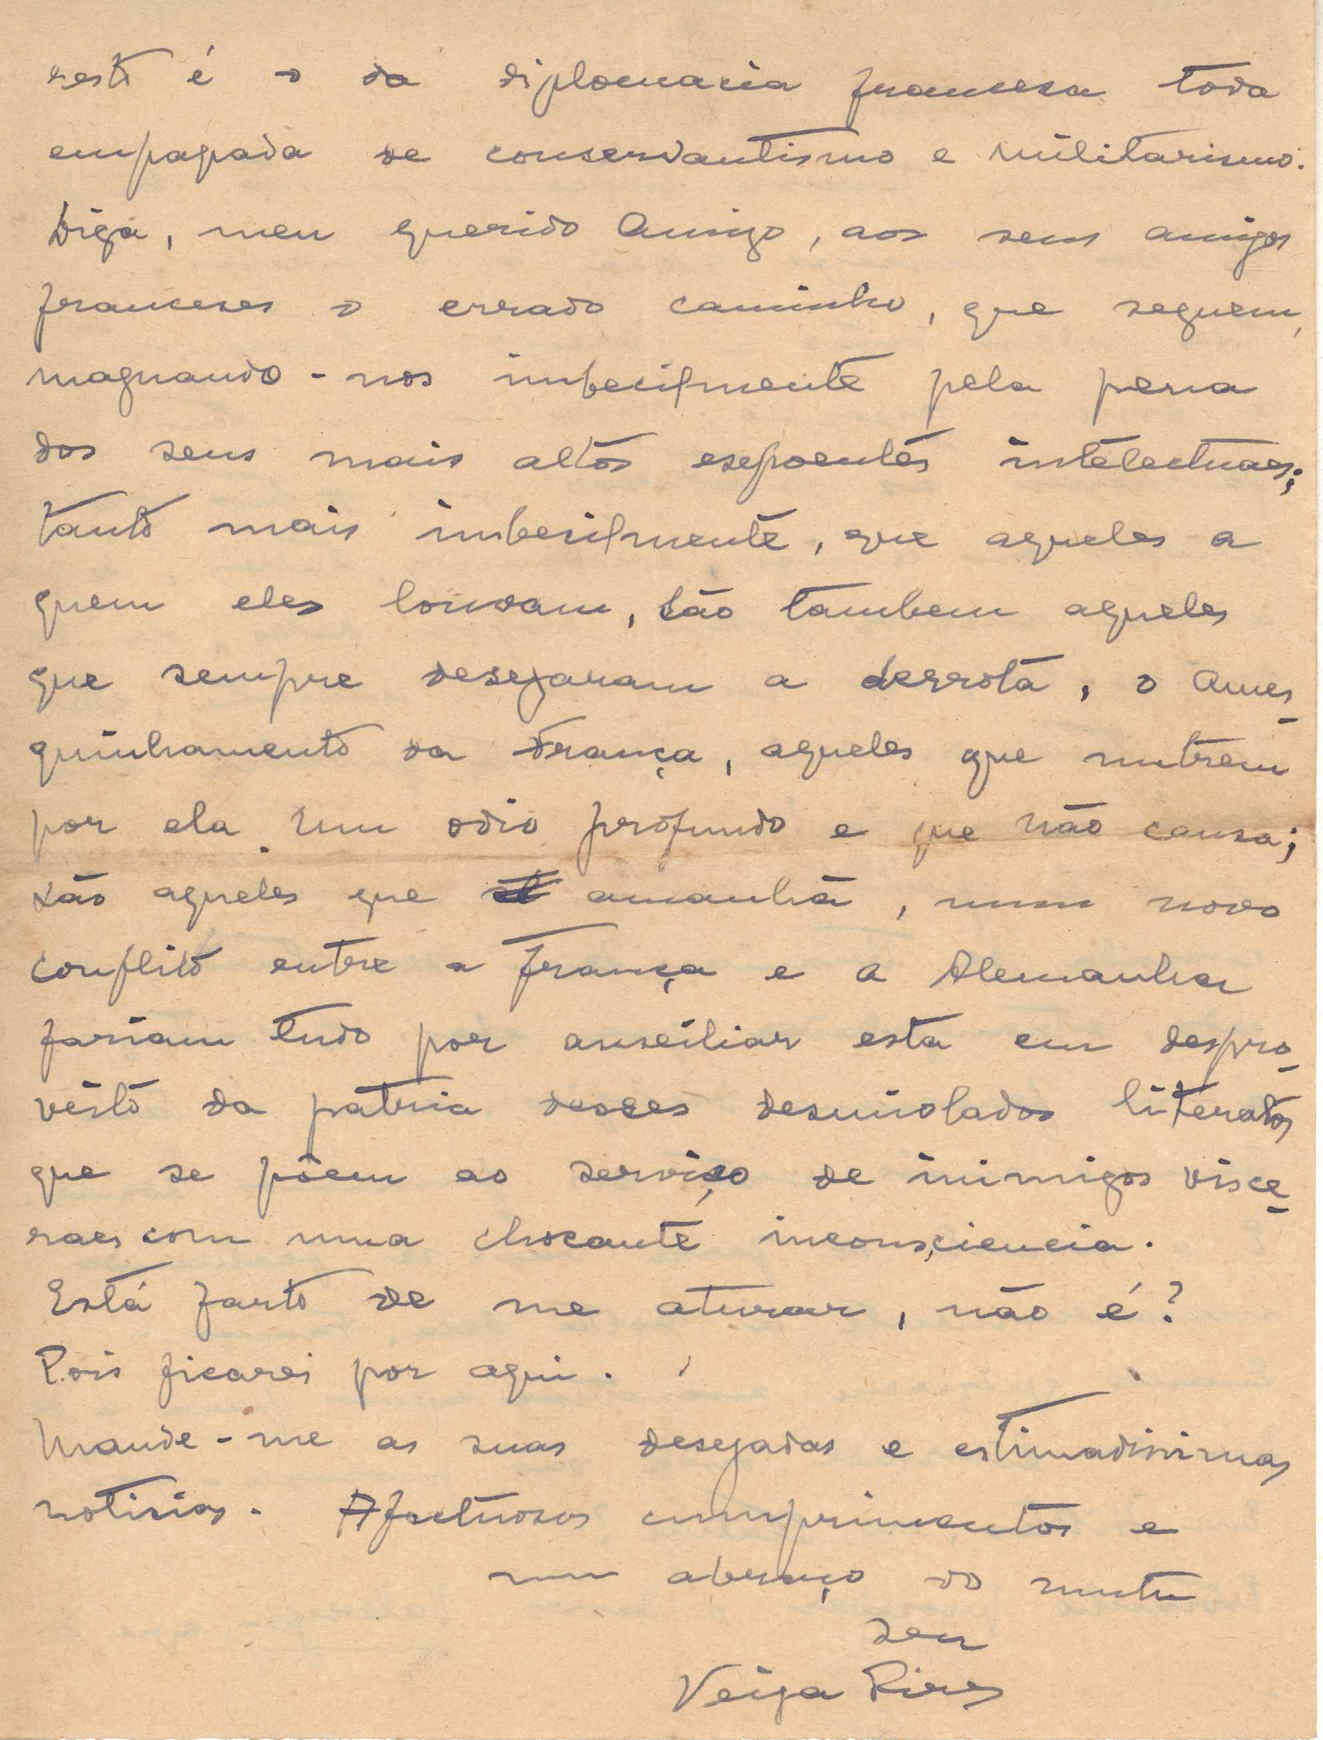 resto é o da diplomacia francesa toda
empapada de conservantismo e militarismo.
Diga, meu querido Amigo, aos seus amigos
franceses o errado caminho, que seguem,
magnando-nos imbecilmente pela pena
dos seus mais altos expoentes intelectuaes;
tanto mais imbecilmente, que aqueles a
quem eles louvam, são tambem aqueles
que sempre desejaram a derrota, o ames-
quinhamento da França, aqueles que nutrem
por ela um odio profundo e que não cansa;
são aqueles que amanhã, num novo
conflito entre a França e a Alemanha
fariam tudo por auxiliar esta em despro-
veito da patria desses desmiolados literatos
que se põem ao serviço de inimigos visce-
raes com uma chocante inconsciencia.
Está farto de me aturar, não é?
Pois ficarei por aqui.
Mande-me as suas desejadas e estimadissimas
noticias. Afectuosos cumprimentos e
um abraço do muito
seu
Veiga Pires